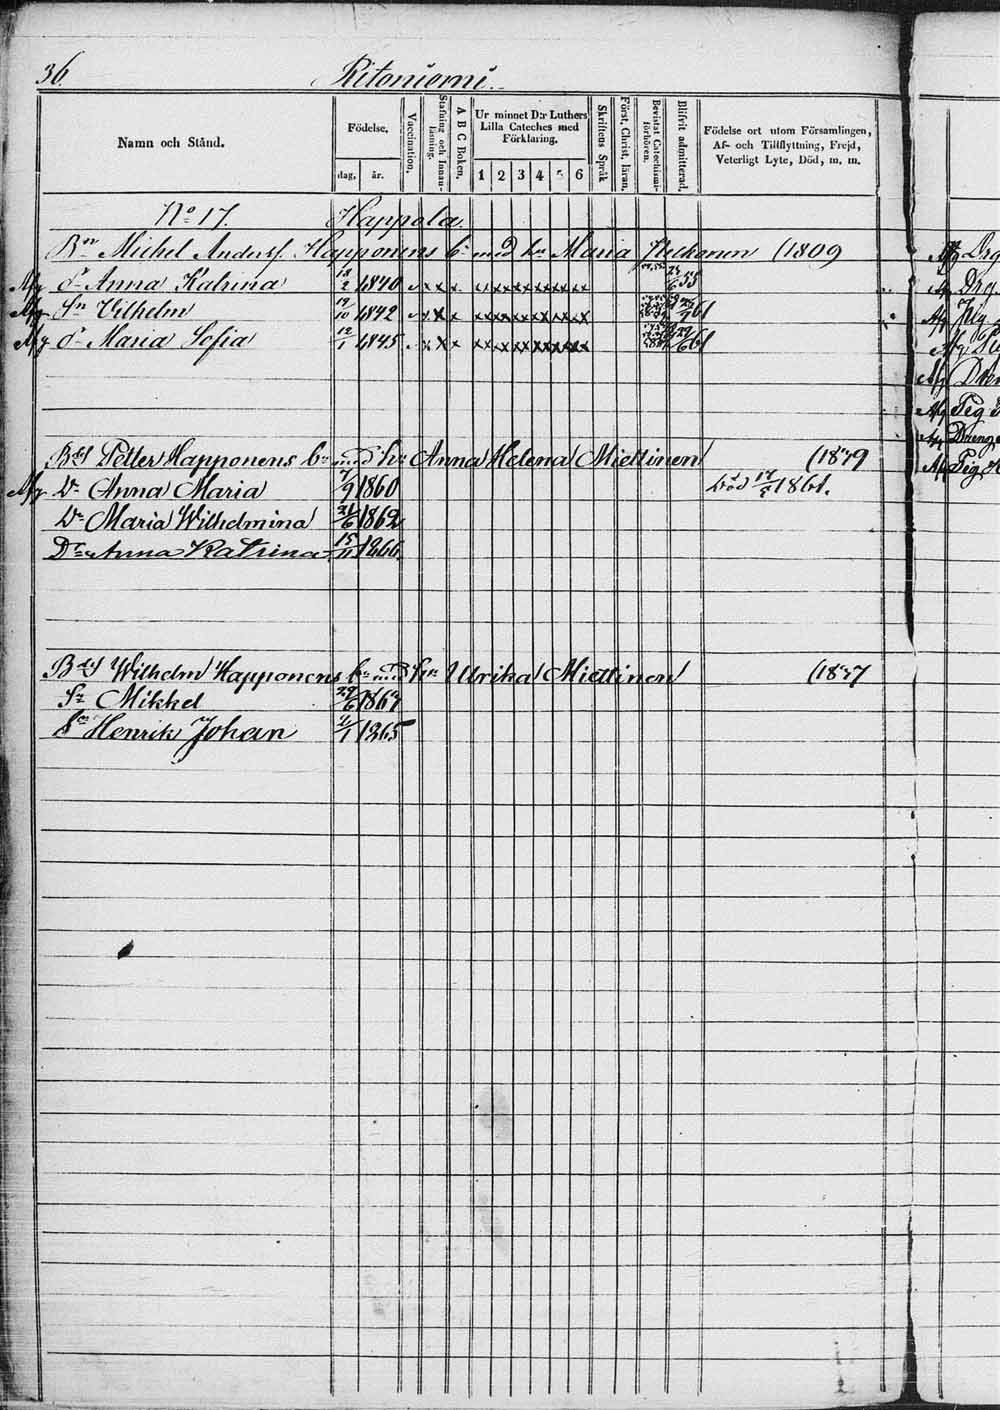 36.
Ritoniemi.
Namn och Stånd.
Födelse,
dag, år.
Vaccination.
Stafning och Innanläsning.
A B C Boken.
Ur minnet D:r Luthers Lilla Cateches med Förklaring.
1 2 3 4 5 6
Skriftens Språk
Först. Christ. läran.
Bevistat Catechismiförhören.
Blifvit admitterad.
Födelse ort utom Församlingen, Af- och Tillflyttning, Frejd, Veterligt Lyte, Död, m. m.
No 17. Happola.
Bn Michel Andersf. Happonens b. med hu Maria (1809
Afg Dr Anna Katrina 18/2 1840 55
Afg Sn Vilhelm 19/10 1842 61
Afg Dr Maria Sofia 12/1 1845 29/6 61
Bds Petter Happonens b. med hu Anna Helena Miettinen (1839
Afg Dr Anna Maria 7/9 1860 Död 17/8 1861.
Dr Maria Wilhelmina 21/6 1862
Dr Anna Katrina 15/11 1866.
Bds Wilhelm Happonens b. med hu Ulrika Miettinen (1837
Sn Mikkel 29/6 1867
Sn Henrik Johan 4/1 1865